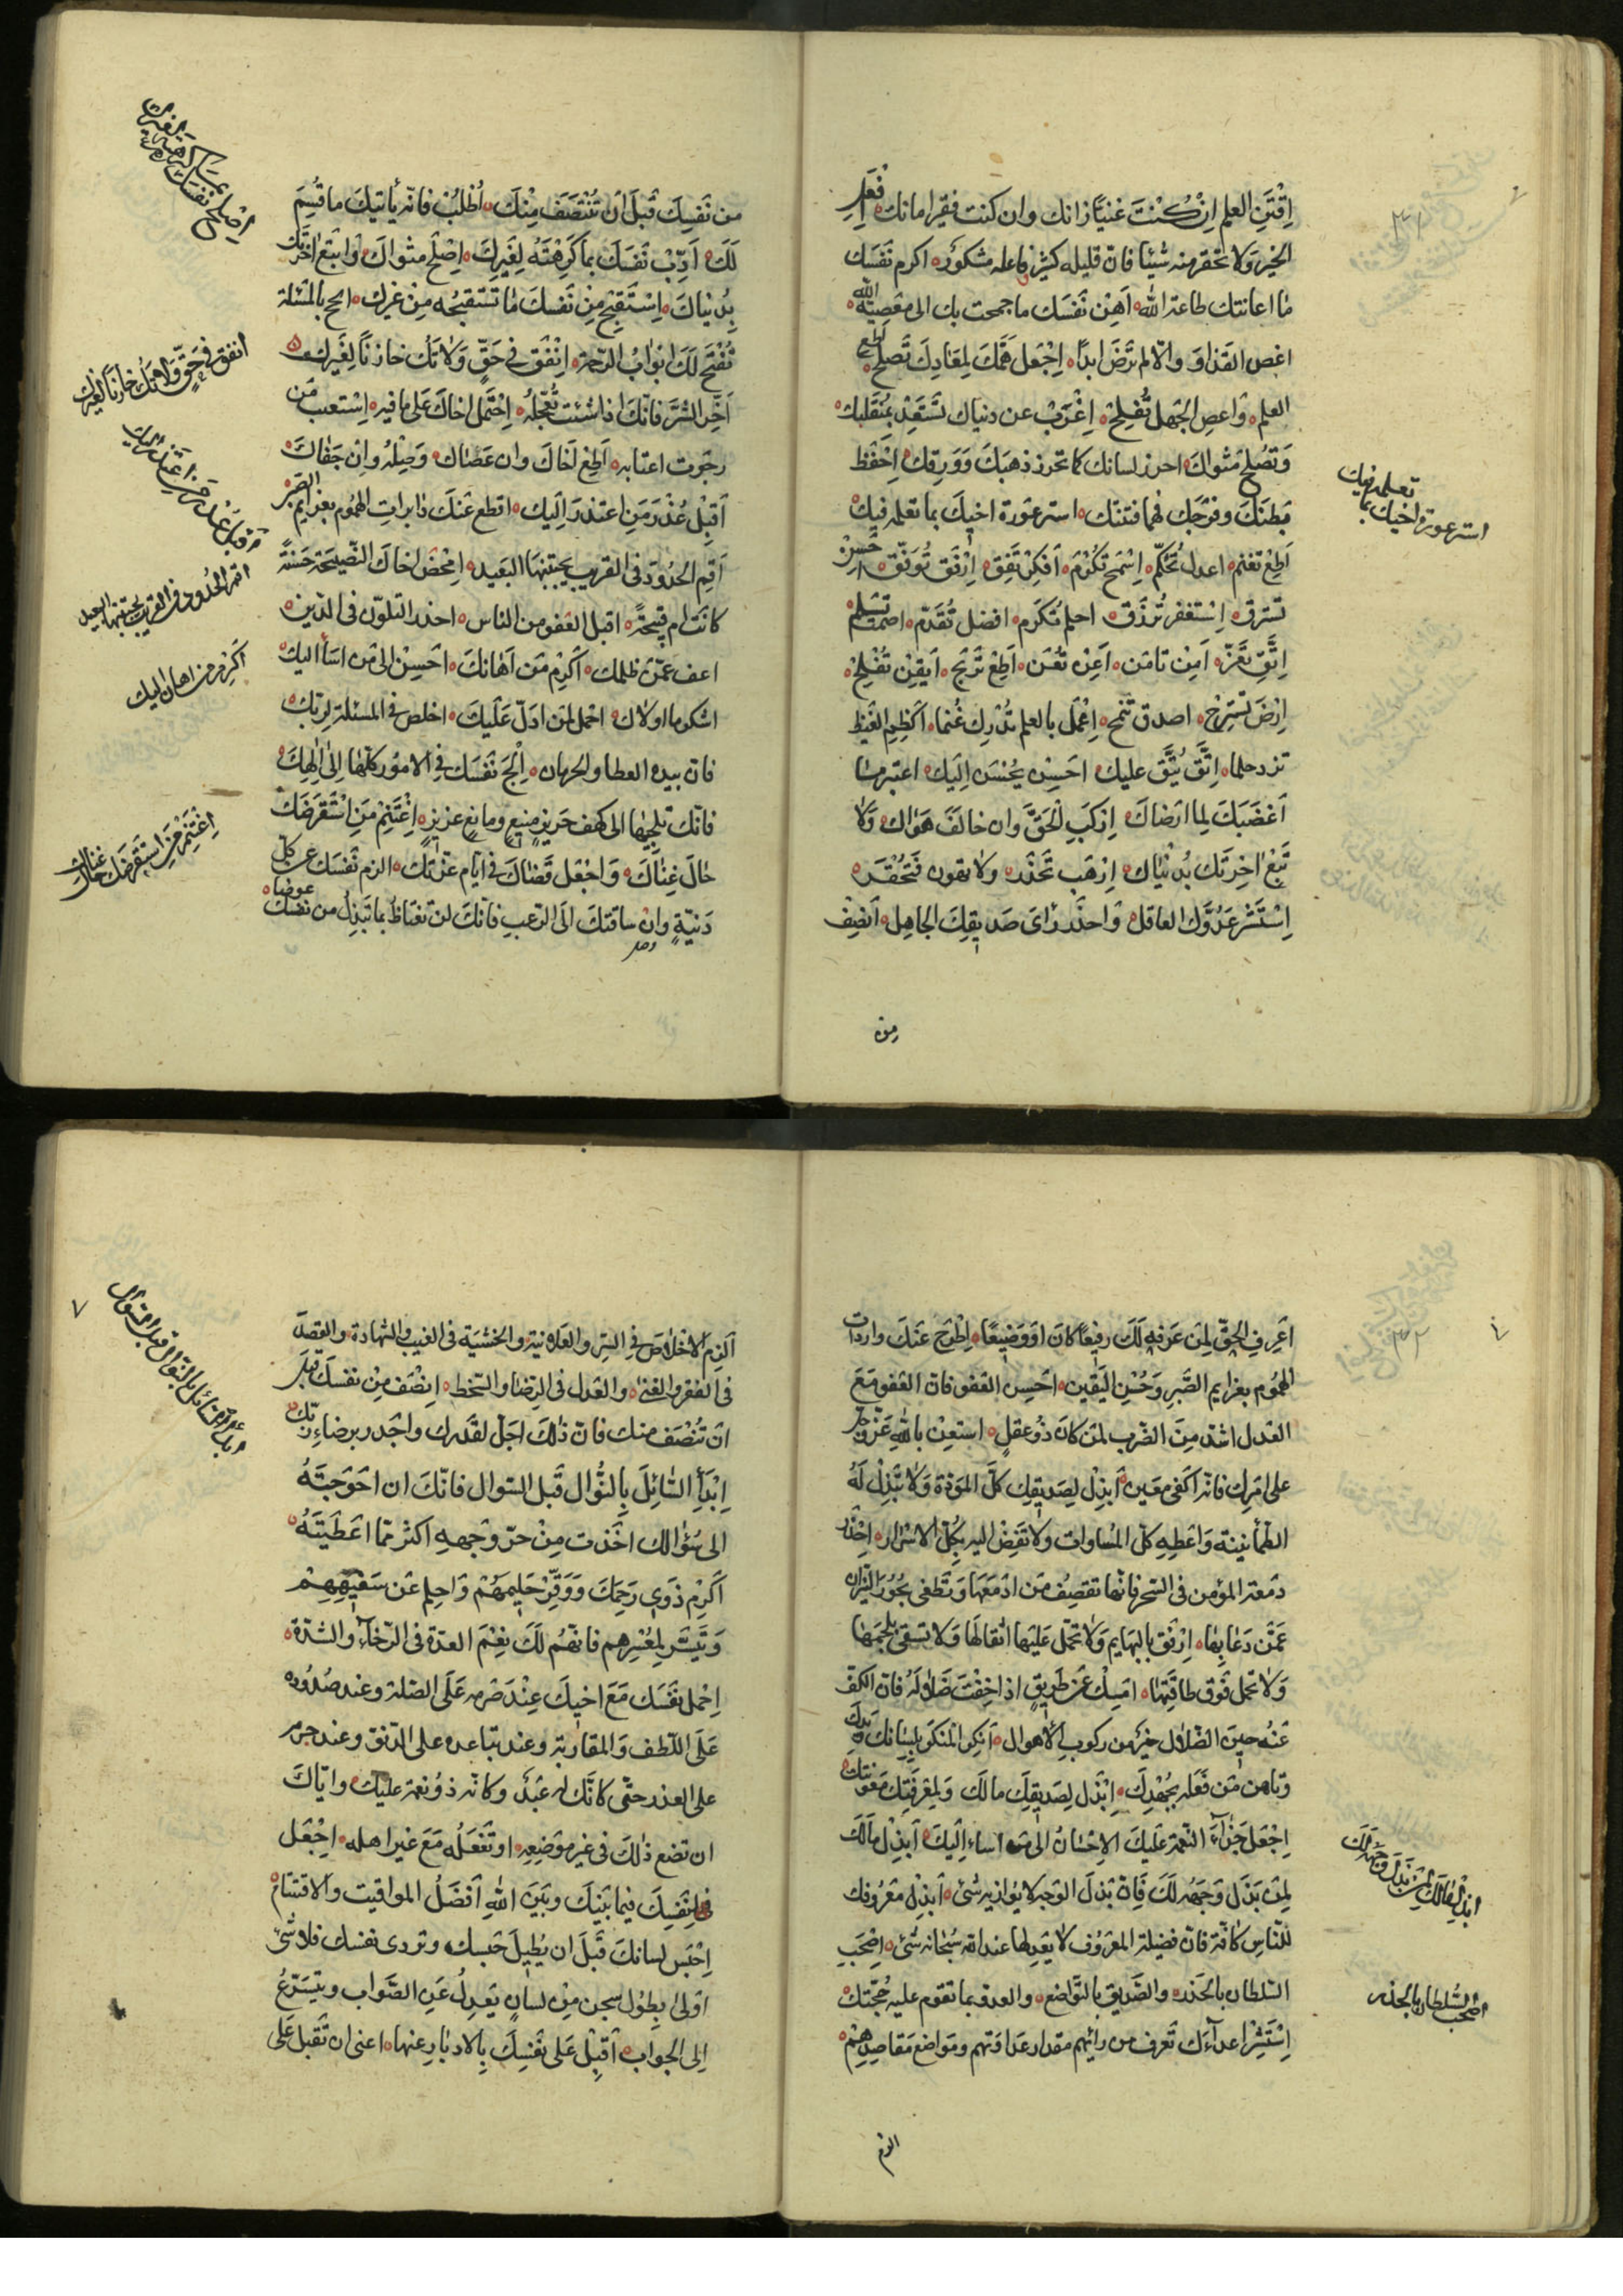 اِقْتَنِ العلم اِنْ كُنْتَ غنيّا زانك وان كنت فقيرا مانك اِفْعَلِ
الخيرَ وَلا تحقر منه شيئا فانّ قليله كثير فاعله مشكورٌ اكرم نَفْسَك
ما اعانتك طاعة الله اَهِنْ نَفْسَك ما جمحت بك الى مَعْصِيَة الله
اغض القذا وَ والّا لم ترضَ ابدًا اِجْعَل هَمَّكَ لِمَعَادِكَ تَصلح اطع
العلم وَاعصِ الجَهل تُفْلِحْ اِعْزَبْ عن دنياك تَسْعَدْ بِمُنْقَلبك
وَتُصْلِحْ مَثواكَ احرز لسانك كما تحرز ذهبَكَ وَوَرِقك اِحْفَظ
بَطنَكَ وفَرْجَك فهما فتنتك استر عَوْرة اخيكَ بما تعلمه فيكَ
اَطِعْ تَغْنم اعدل تُحَكَّم اِسْمَحْ تُكْرَم اَفكِرْ تُفِقْ اِرْفَق تُوَفَّق اَحْسِنْ
تسترق اِسْتَغفِر تُرْزَق احلم تُكْرَم افضل تُقَدَّم اصمت تسْلم
اِتَّقِ تَفُزْ آمِنْ تامَن اَعِنْ تُعَن اَطِعْ تَرْبح اَيقِنْ تُفْلِحْ
اِرْضَ تَسْتَرِحْ اصدق تنجح اِعْمَل بالعلم تُدْرِك غُنما اَكْظِمِ الغَيْظ
تزدد حلما اِتَّقِ يُبَقَّ عليكَ احسِن يُحْسَن اِلَيكَ اعتبر مما
اَغْضَبَكَ لِما ارضاكَ اِركَبِ الحَقَّ وان خالفَ هَوَاك وَلا
تَبِعْ اخِرَتك بدُنْياك اِرْهَب تَحْذَر ولا تهون فَتُحْقَر
اِسْتَشِرْ عَدُوَّك العاقل وَاحذَر رَاىَ صَديقِكَ الجاهِل اَنصِف
من
استر عورة اخيك بما
تعلمه فيك
من نَفسِكَ قَبلَ ان تُنْتَصَف مِنكَ اُطْلُبْ فانّه يأتيكَ ما قُسِمَ
لَكَ اَدِّبْ نَفسَكَ بما كَرِهْتَهُ لِغَيرِكَ اِصْلِحْ مثواكَ وَابتَعْ اخرتك
بِدُنياكَ اِسْتَقبِحْ مِنْ نَفسِكَ ما تَستَقبِحُه مِنْ غيرك الح بالمسئلة
تُفْتَح لَكَ ابوَابُ الرّحمة اِنْفِق فى حَقٍّ وَلا تكُ خازنًا لِغَيرك
اَخِّر الشَّرّ فانّكَ اذا شئت تُعجِّلهُ اِحْتَمل اخاكَ على ما فيه اِسْتعتب مَن
رجَوت اعتابه اَطِعْ اَخاكَ وان عَصاكَ وَصِلْهُ وان جَفاكَ
اَقبِلْ عُذْرَ مَنِ اعتذر اِليك اقطع عَنكَ دابرات الهُمُوم بعَزايمِ الصَّبْر
اَقِم الحُدُودَ فى القريب يَجتنبها البعيد اِمْحَضْ اخاكَ النّصيحَة حَسَنةً
كانتْ ام قبيحةً اقبل العفو من الناس احذر التلوّن فى الدّين
اعف عمّن ظلمك اَكْرِم مَن اَهانَكَ احسِنْ الى مَن اسَاَ اليك
اشكر ما اولاك احمل لمن ادلّ عَلَيكَ اخلص فى المسئلة لِربّك
فان بيده العطا والحرمان اِلْجَ نَفْسَك فى الامور كلّها اِلى اِلٰهِكَ
فانّكَ تُلجِيها الى كهف حَريزٍ منيعٍ ومانعٍ عزيزٍ اِغْتَنِمْ مَنِ اسْتَقْرَضَكَ
حَالَ غِناكَ وَاجْعَل قَضَاكَ فى ايّام عزّتكَ الزم نَفْسَك عن كلّ
دَنِيَّةٍ وان ساقتكَ الى الرّعب فانّكَ لن تعتاضَ بما تبذل من نَفسك عوضا
انفق فى حَقّ وَلا تَكُ خازنًا لغيرك
اقم الحُدُود فى القريب يجتنبها البعيد
اَكْرِم من اهان اليك
اِغْتَنِمْ مَنِ استقرضك حَالَ غناك
اعَرِفِ الحقّ لِمَن عَرفه لَكَ رفيعًا كانَ اَوْ وَضِيعًا اِطْرَحْ عَنكَ واردات
الهُمُومِ بعزايم الصَّبرِ وَحُسْنِ اليَقين احْسِن العفو فانّ العَفو مَعَ
العَدل اشدّ مِنَ الضّرب لمَن كانَ ذُو عقلٍ استعِنْ بالله عَزَّ وَجَلَّ
على امرِك فانّه اَكْفى مُعين اَبذِلْ لِصَديقِك كلّ المودّة وَلا تَبْذِلْ لَهُ
الطّمأنينة وَاعْطِهِ كلّ المُساوات ولا تَفِضْ اليه بِكُلّ الاسْرار اِحْذَر
دمعة المؤمن فى السّحر فانّها تقصِف مَن ادْمَعَها وَتُطْفى بُحُورَ النيران
عمّن دَعَا بِها اِرْفق بالبهايم وَلا تُحمّل عَلَيها اثقالها وَلا تسقى بلجمها
وَلا تحمل فَوق طاقتِها امسِكْ عن طَريقٍ اذا خِفْتَ ضَلالهُ فان الكَفّ
عَنهُ حينَ الضّلال خيرٌ من ركوب الاهوال اَنكِر المنكر بلسانك ويدك
وبَاين مَن فَعَله بجُهْدِك ابذل لِصَديقِكَ مالَكَ وَلمعرفَتِك مَعُونتك
اِجْعَل جَزاءَ النّعمة عَليكَ الاحْسَانُ الى من اساء اِليكَ اَبذِلْ مالَكَ
لِمَن بَذَلَ وَجهه لَكَ فَانّ بَذلَ الوَجه لا يُوازيه شَئ اَبذِلْ معْرُوفك
للنّاسِ كافّة فانّ فضيلة المعْرُوف لا يعْدِلها عند الله سُبحانه شئ اِصْحَبِ
السّلطان بالحَذر والصَّديق بالتّواضع والعدوّ بما تقوم عليه حُجّتك
اِسْتَشِرْ اعدآءَك تَعرف من رائهم مقدار عَداوَتهم ومَواضع مَقاصِدِهِمْ
الزم
ابذِلْ مالَكَ لمَن بَذَلَ وجهه لك
اصحب السُّلطان بالحذر
اَلزِم الاخْلاصَ فى السّر والعَلانية والخَشيَة فى الغيب والشهادة والقصدَ
فى الفقر والغِنا والعدل فى الرّضا والسّخط انصف مِنْ نفسك قبل
ان تُنْصَف منك فانّ ذلكَ اجَلّ لقَدرك واجدر برضاء ربّك
اِبْدَأ السّائلَ بِالنَّوال قَبل السّوال فانّكَ ان احْوَجتَهُ
الى سُؤالك اخَذت مِنْ حرّ وَجهِه اكثر ممّا اعْطَيتَهُ
اَكْرِمْ ذَوى رَحِمَكَ وَوَقِّرْ حَليمهُمْ وَاحلِم عَن سَفيهِهِمْ
وَتَيسّر لِمُعْسِرِهم فانّهُم لَكَ نِعْمَ العدّة فى الرّخآءِ والشّدّة
اِحْمل نفسَك مَعَ اخيكَ عِنْدَ صَرْمه عَلَى الصّلة وعند صُدُوده
عَلَى اللّطف وَالمقاربة وعند تباعده على الدّنو وعند جرمه
على العذر حتّى كانّك له عَبْدٌ وكانّه ذُو نعمة عليك وايّاكَ
ان تضع ذلكَ فى غير مَوْضِعِه او تَفْعَلُه مَعَ غير اهله اِجْعَل
لِنَفسِكَ فيما بَينكَ وبَينَ اللهِ اَفضَلُ المواقيت والاقسَام
اِحْبَس لسانكَ قَبلَ ان يُطيلَ حَبسك وتردى نفسك فلا شئ
اولى بطول سجن مِنْ لسانٍ يَعدِلُ عَنِ الصَّواب ويتسَرّعُ
الى الجواب اَقبِلْ عَلى نَفْسِكَ بِالادبارِ عنها اعنى ان تقبل عَلى